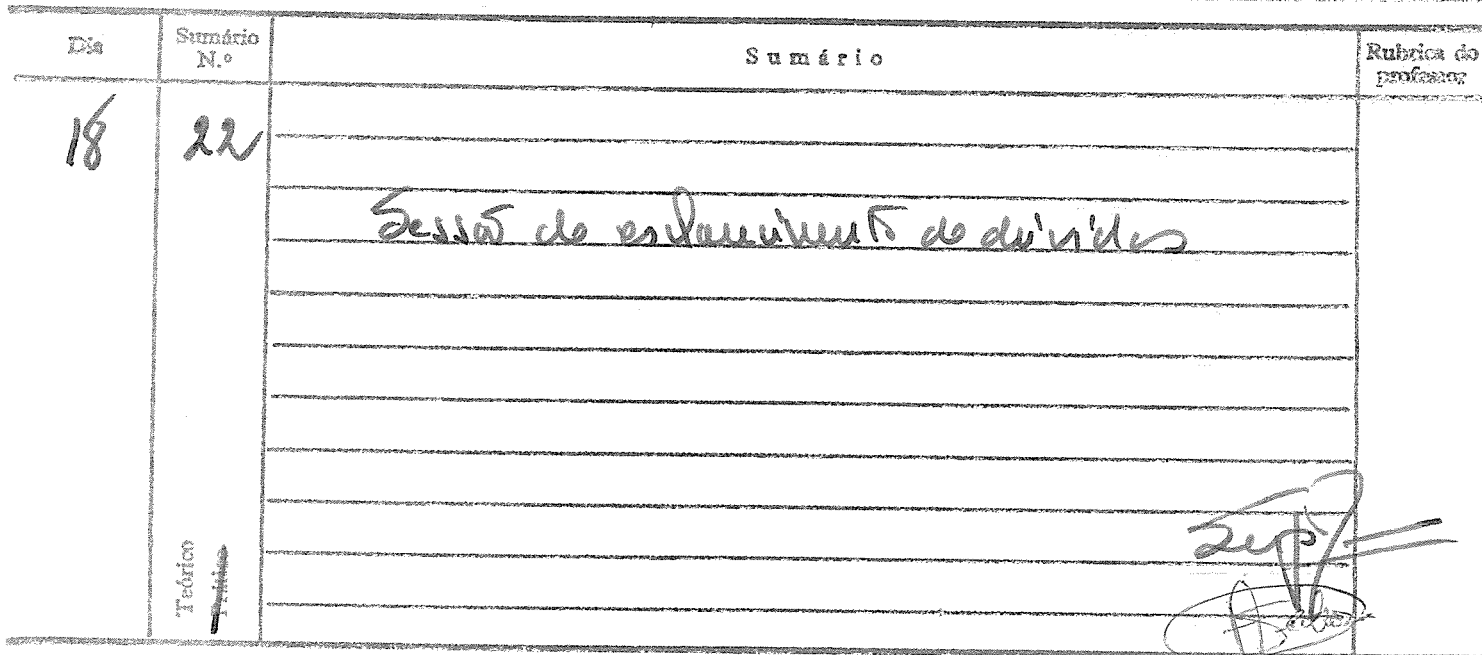 Dia
Sumário
N.º
Sumário
Rubrica do
professor
18
22
Sessão de esclarecimento de dúvidas
Teórico
Prático